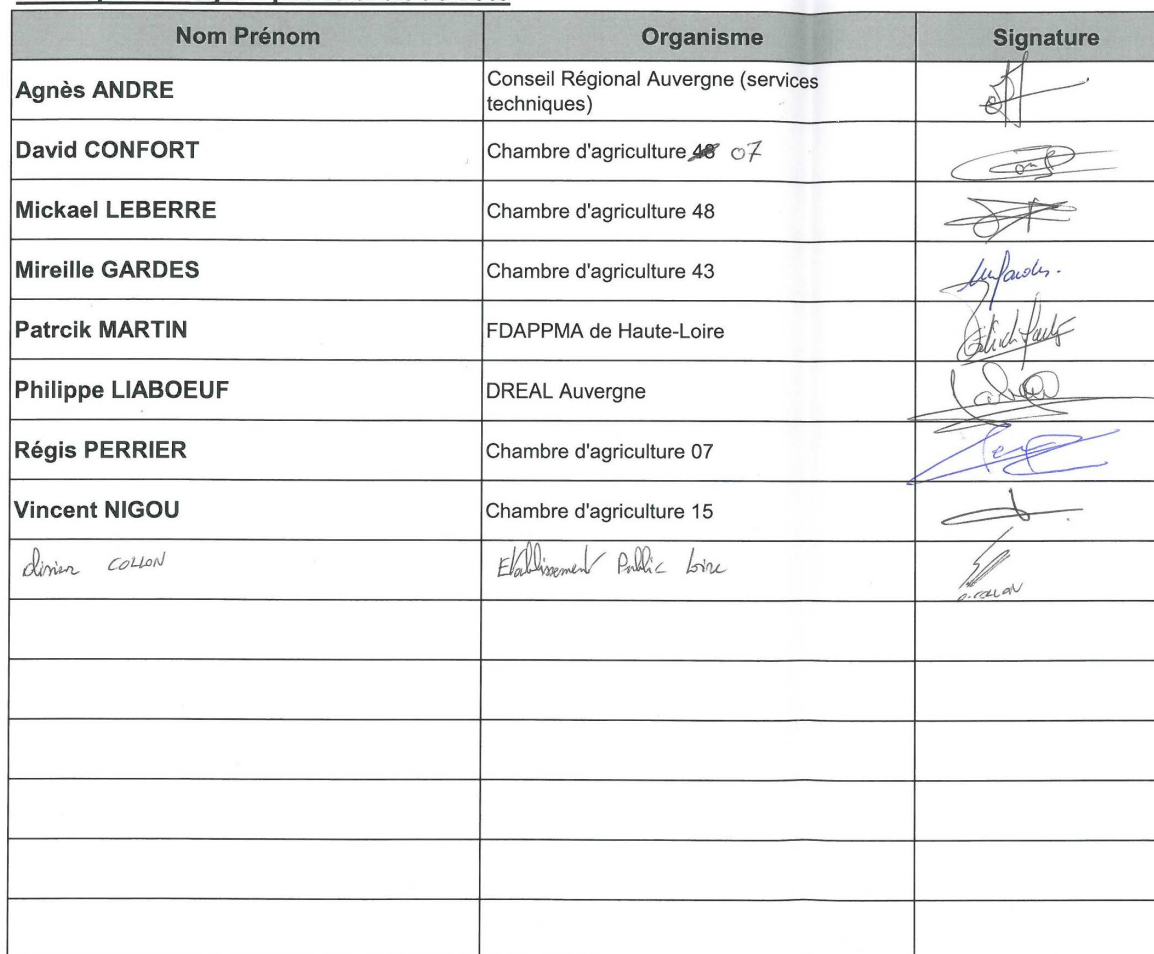 Nom Prénom Organisme Signature
Agnès ANDRE Conseil Régional Auvergne (services
techniques)
David CONFORT Chambre d'agriculture 48 07
Mickael LEBERRE Chambre d'agriculture 48
Mireille GARDES Chambre d'agriculture 43
Patrcik MARTIN FDAPPMA de Haute-Loire
Philippe LIABOEUF DREAL Auvergne
Régis PERRIER Chambre d'agriculture 07
Vincent NIGOU Chambre d'agriculture 15
COLLON Etablissement Public Loire